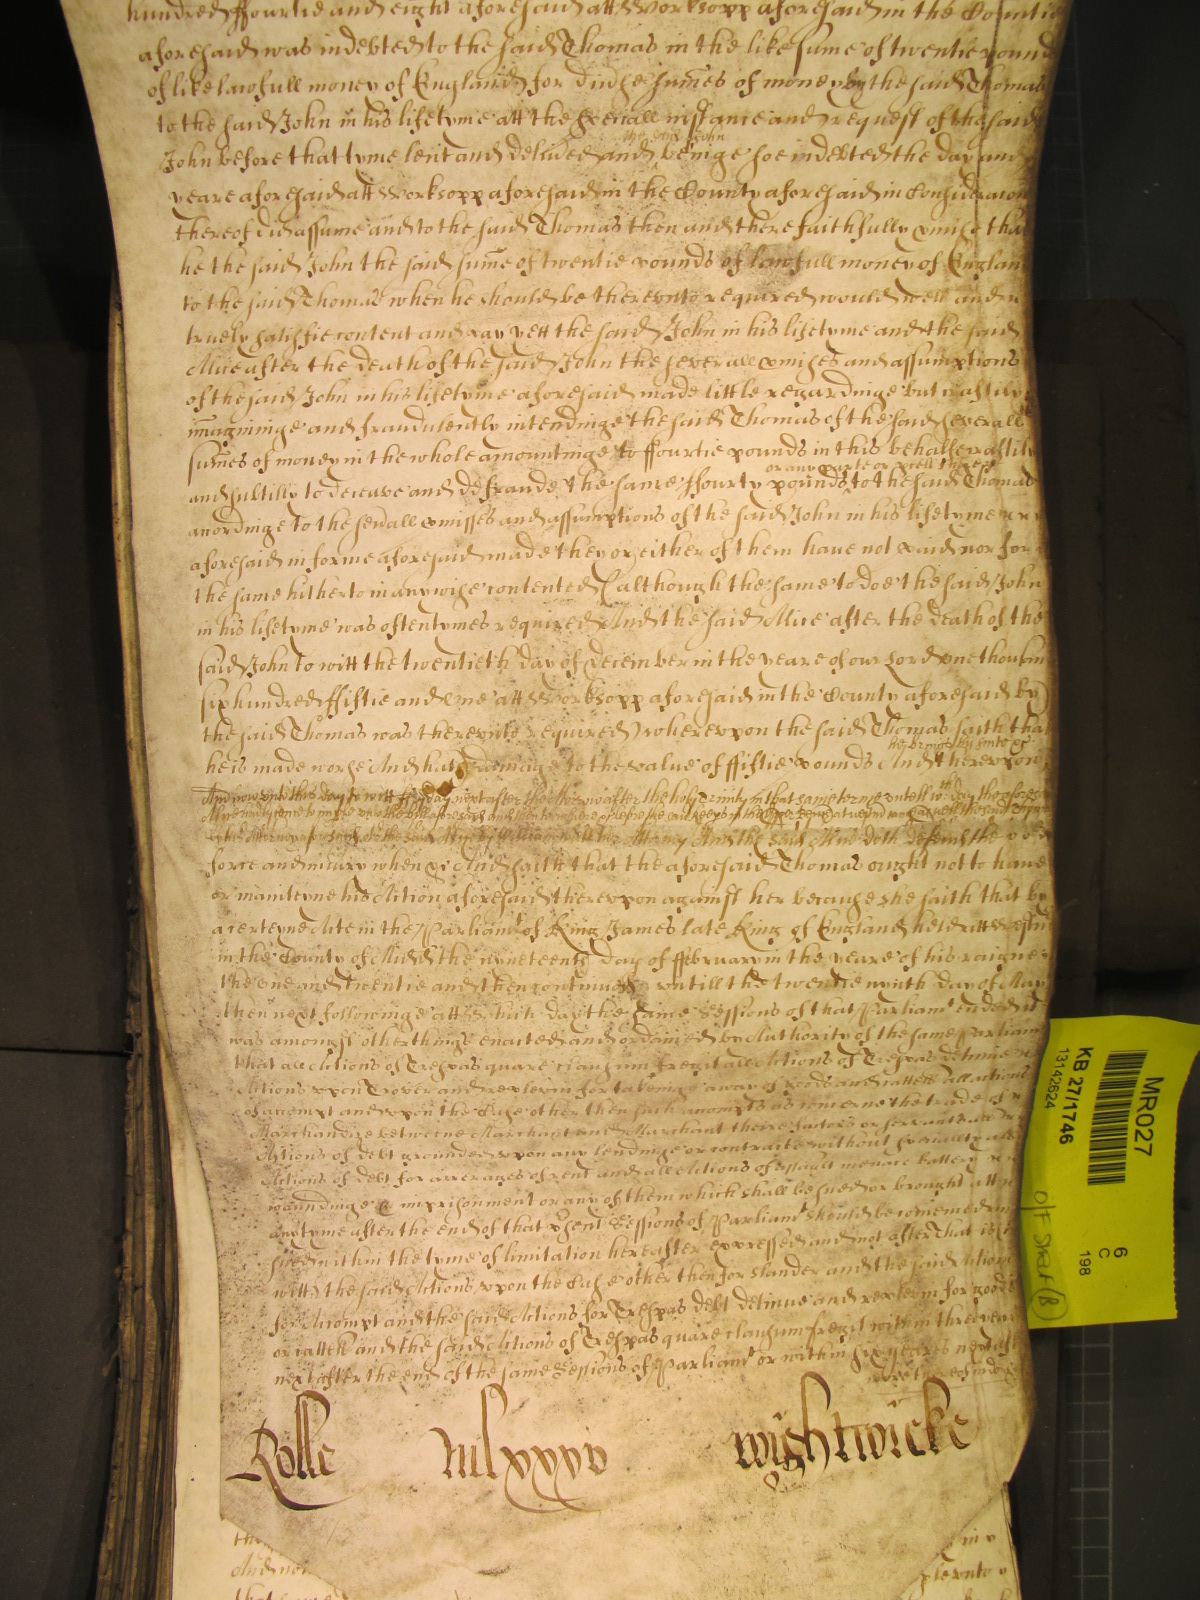 hundred ffourtie and eight aforesaid att Worksopp aforesaid in the Countie
aforesaid was indebted to the said Thomas in the like sume of twentie pound
of like lawfull money of England for divse sumes of money by the said Thomas
to the said John in his lifetyme att the speciall instance and request of the said
the said John
John before that tyme lent and delived and beinge soe indebted the day and
yeare aforesaid att Worksopp aforesaid in the County aforesaid in Consideracon
thereof did assume and to the said Thomas then and there faithfully pmise that
he the said John the said sume of twentie pounds of lawfull money of England
to the said Thomas when he should be therevnto required would well and
truely satisfie content and pay yett the said John in his lifetyme and the said
Alice after the death of the said John the severall pmises and assumptions
of the said John in his lifetyme aforesaid made little regardinge but craftily
imagininge and fraudulently intendinge the said Thomas of the said severall
sumes of money in the whole amountinge to ffourtie pounds in this behalfe craftily
or any parte or pcell thereof
and subtilly to deceave and defraude the same ffourty pounds to the said Thomas
accordinge to the sevall pmisses and assumptions of the said John in his lifetyme
aforesaid in forme aforesaid made they or either of them have not paid nor for
the same hitherto in any wise contented (although the same to doe the said John
in his lifetyme was oftentymes required And the said Alice after the death of the
said John to witt the twentieth day of December in the yeare of our Lord one thousand
six hundred ffiftie and One att Worksopp aforesaid in the County aforesaid by
the said Thomas was therevnto required) wherevpon the said Thomas saith that
he is made worse And hath damage to the value of ffiftie pounds And therevpon
he bringeth his suite &c
And now att this day to witt ffryday next after the Morrow after the holy Trinity in that same terme vntill w:ch day the aforesaid
Alice had leave to imparle to the bill aforesaid and then to answere
by his Attorney aforesaid as the said Alice by William his Attorney And the said Alice doth defend the
force and iniury when &c And saith that the aforesaid Thomas ought not to have
or mainteyne his Action aforesaid therevpon against her because she saith that by
a certeyne Acte in the Parliamt of King James late King of England held att Westm
in the County of Midd the nyneteenth day of ffebruary in the yeare of his raigne
the one and twentie and then continued vntill the twentie nynth day of May
then next followinge att Which day the same Sessions of that Parliamt ended it
was amongst other things enacted and ordained by Authority of the same Parliam
that all Actions of Trespas quare clausum fregit all Actions of Trespas detinue
Actions vpon Trover and replevin for takeinge away of goods and cattells all actions
of accompt and vpon the Case other then such accompts as concerne the trade of
Marchandize betweene Marchant and Marchant theire factors or servants
Actions of debt grounded vpon any lendinge or contracte without specialty all
Actions of debt for arrerages of rent and all Actions of assault menace battery
woundinge & imprisonment or any of them which shall be sued or brought att
any tyme after the end of that psent Sessions of Parliamt should be comenced and
sued within the tyme of limitation hereafter expressed and not after That is to
witt the said Actions vpon the Case other then for slander and the said Actions
for Accompt and the said Actions for Trespas debt detinue and replevin for goods
or cattell and the said Actions of Trespas quare clausum fregit within three yeares
next after the end of the same Sessions of Parliamt or within six yeares next after
more thereof indorsed
Rolle mlxxxv Wightwicke
MR027
KB 27/1746
13142624
6
C
198